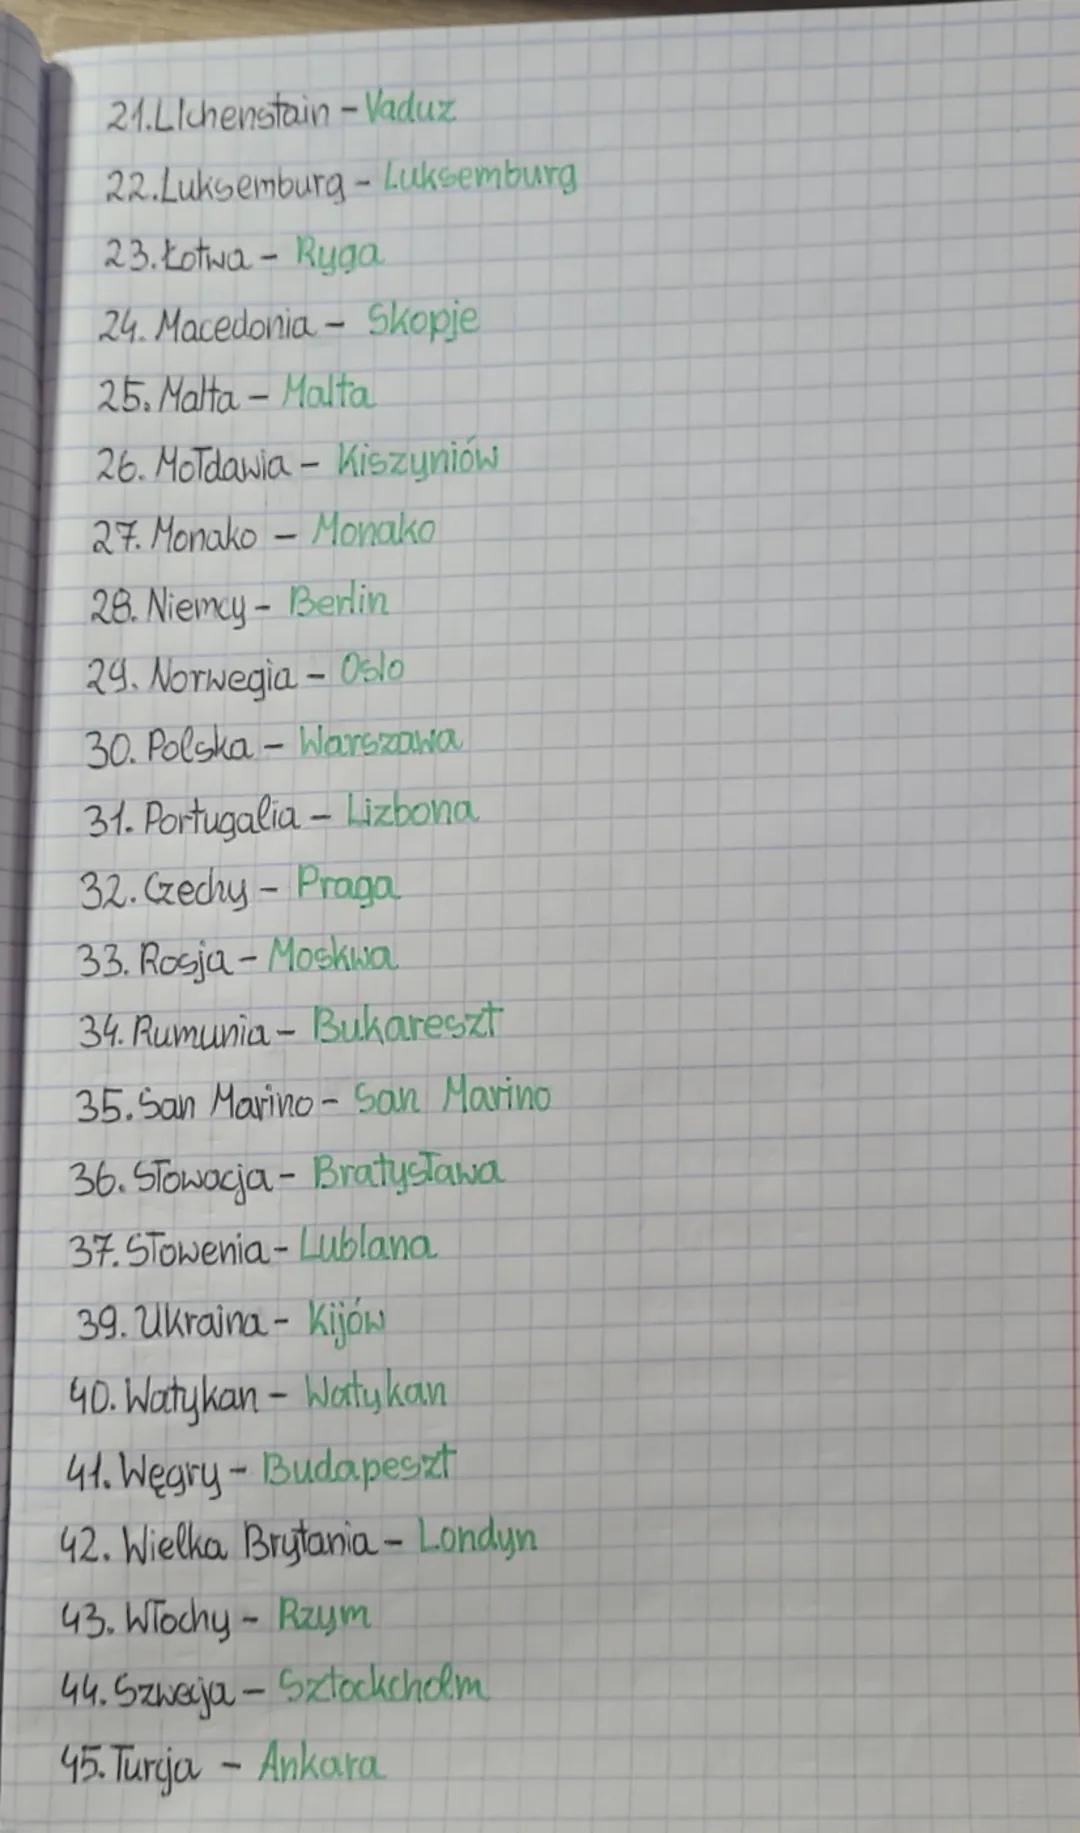 21.LIchenstain - Vaduz
22.Luksemburg - Luksemburg
23.Łotwa - Ryga
24. Macedonia - Skopje
25. Malta - Malta
26. Mołdawia - Kiszyniów
27. Monako - Monako
28. Niemcy - Berlin
29. Norwegia - Oslo
30. Polska - Warszawa
31. Portugalia - Lizbona
32. Czechy - Praga
33. Rosja - Moskwa
34. Rumunia - Bukareszt
35. San Marino - San Marino
36. Słowacja - Bratysława
37. Słowenia - Lublana
39. Ukraina - Kijów
40. Watykan - Watykan
41. Węgry - Budapeszt
42. Wielka Brytania - Londyn
43. Włochy - Rzym
44. Szwecja - Sztockcholm
45. Turcja - Ankara